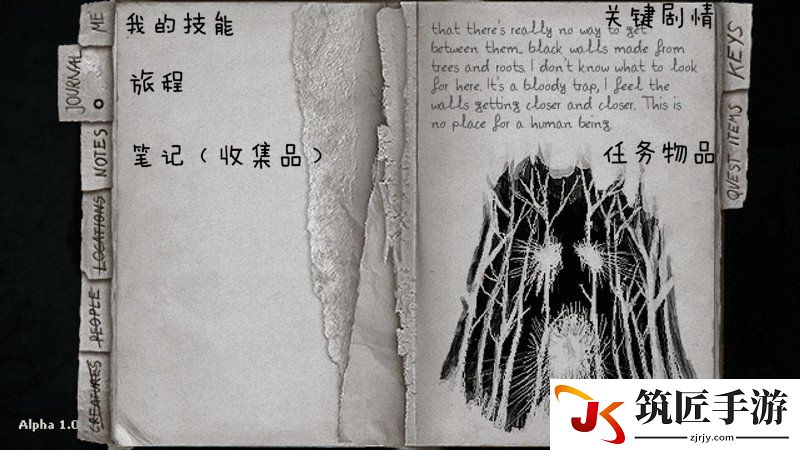 ME
JOURNAL
NOTES
LOCATIONS
PEOPLE
CREATURES
我的技能
旅程
笔记（收集品）
关键剧情
that there's really no way to get
between them... black walls made from
trees and roots. I don't know what to look
for here. It's a bloody trap, I feel the
walls getting closer and closer. This is
no place for a human being.
任务物品
KEYS
QUEST ITEMS
Alpha 1.0
JK
筑匠手游
zjrjy.com